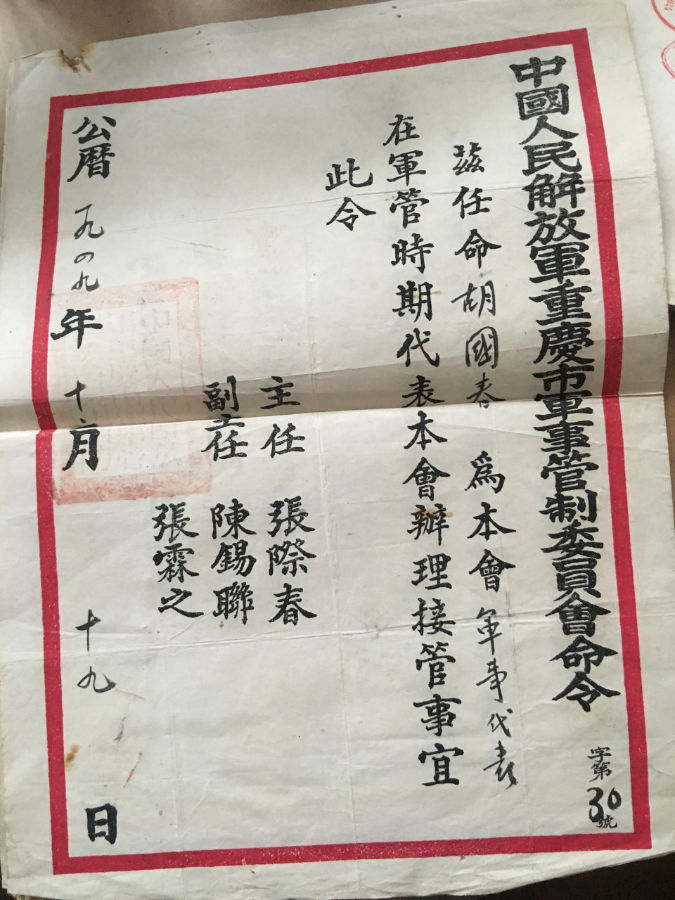 中國人民解放軍重慶市軍事管制委員會命令
字第30號
茲任命胡國春為本會軍事代表
在軍管時期代表本會辦理接管事宜
此令
主任 張際春
副主任 陳錫聯
張霖之
公曆一九四九年十二月十九日